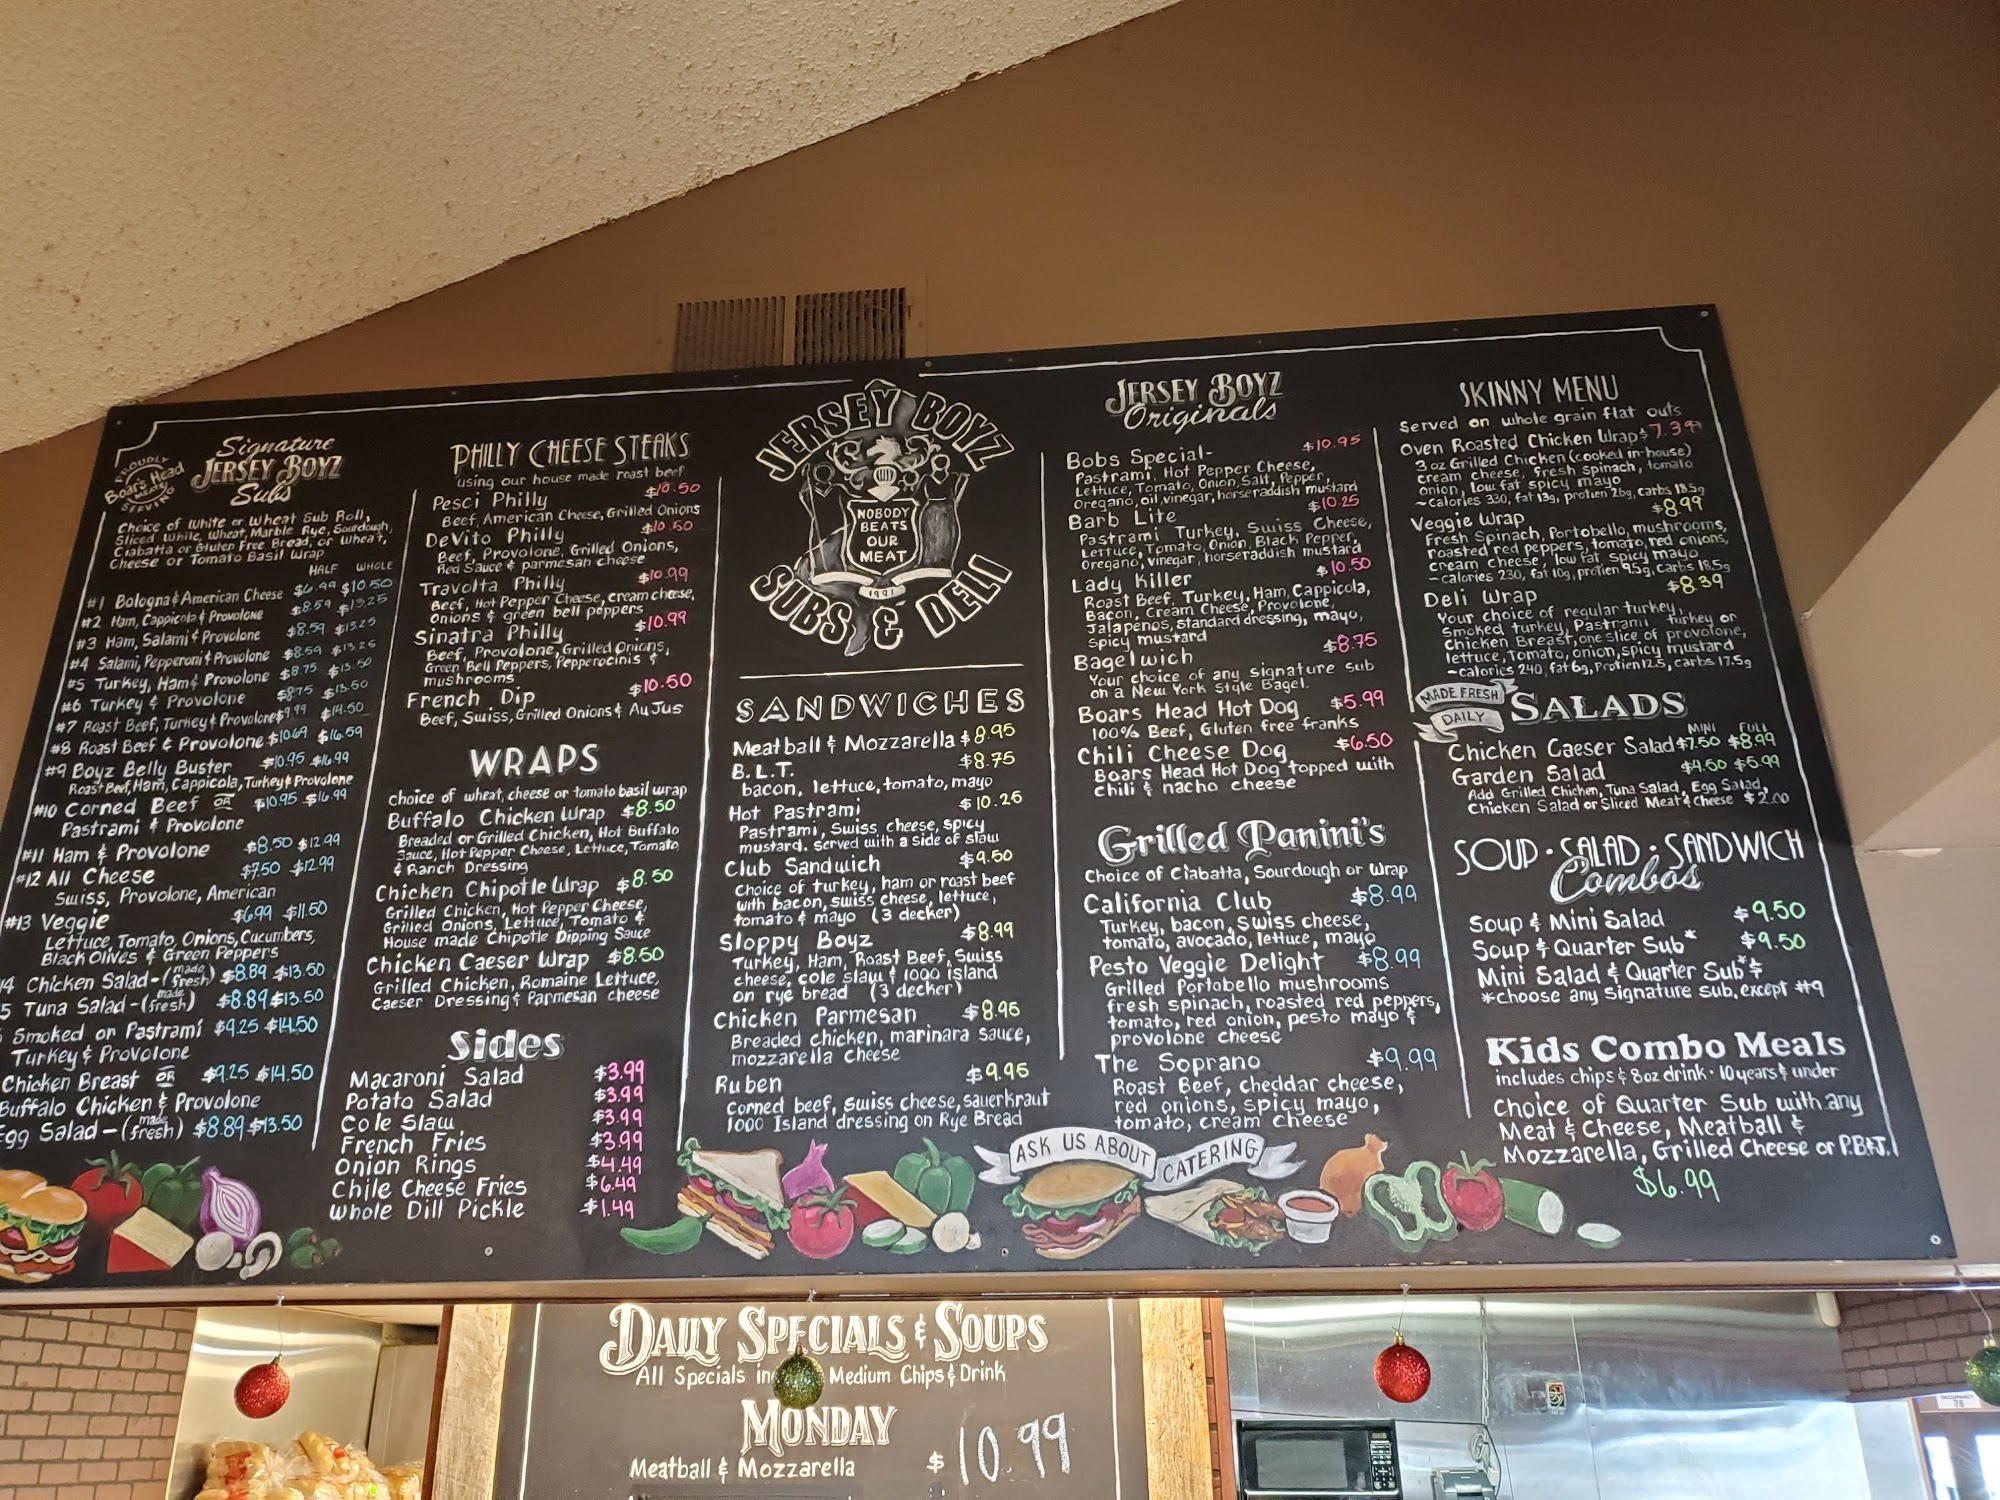 PROUDLY
Boar's Head
MEATS
SERVING
Signature
JERSEY BOYZ
Subs
Choice of White or Wheat Sub Roll,
Sliced White, Wheat, Marble Rye, Sourdough,
Ciabatta or Gluten Free Bread, or Wheat,
Cheese or Tomato Basil Wrap
HALF WHOLE
#1 Bologna & American Cheese $6.99 $10.50
#2 Ham, Cappicola & Provolone $8.59 $13.25
#3 Ham, Salami & Provolone $8.59 $13.25
#4 Salami, Pepperoni & Provolone $8.59 $13.25
#5 Turkey, Ham & Provolone $8.75 $13.50
#6 Turkey & Provolone $8.75 $13.50
#7 Roast Beef, Turkey & Provolone $9.99 $14.50
#8 Roast Beef & Provolone $10.69 $16.59
#9 Boyz Belly Buster $10.95 $16.99
Roast Beef, Ham, Cappicola, Turkey & Provolone
#10 Corned Beef OR $10.95 $16.99
Pastrami & Provolone
#11 Ham & Provolone $8.50 $12.99
#12 All Cheese $7.50 $12.99
Swiss, Provolone, American
#13 Veggie $6.99 $11.50
Lettuce, Tomato, Onions, Cucumbers,
Black Olives & Green Peppers
14 Chicken Salad - (made fresh) $8.89 $13.50
5 Tuna Salad - (made fresh) $8.89 $13.50
Smoked or Pastrami $9.25 $14.50
Turkey & Provolone
Chicken Breast OR $9.25 $14.50
Buffalo Chicken & Provolone
Egg Salad - (made fresh) $8.89 $13.50
PHILLY CHEESE STEAKS
using our house made roast beef
Pesci Philly $10.50
Beef, American Cheese, Grilled Onions
DeVito Philly $10.50
Beef, Provolone, Grilled Onions,
Red Sauce & parmesan cheese
Travolta Philly $10.99
Beef, Hot Pepper Cheese, cream cheese,
Onions & green bell peppers
Sinatra Philly $10.99
Beef, Provolone, Grilled Onions,
Green Bell Peppers, Pepperocinis &
mushrooms
French Dip $10.50
Beef, Swiss, Grilled Onions & Au Jus
WRAPS
choice of wheat, cheese or tomato basil wrap
Buffalo Chicken Wrap $8.50
Breaded or Grilled Chicken, Hot Buffalo
Sauce, Hot Pepper Cheese, Lettuce, Tomato
& Ranch Dressing
Chicken Chipotle Wrap $8.50
Grilled Chicken, Hot Pepper Cheese,
Grilled Onions, Lettuce, Tomato &
House made Chipotle Dipping Sauce
Chicken Caeser Wrap $8.50
Grilled Chicken, Romaine Lettuce,
Caeser Dressing & Parmesan cheese
Sides
Macaroni Salad $3.99
Potato Salad $3.99
Cole Slaw $3.99
French Fries $3.99
Onion Rings $4.49
Chile Cheese Fries $6.49
Whole Dill Pickle $1.49
JERSEY BOYZ
NOBODY
BEATS
OUR
MEAT
1991
SUBS & DELI
SANDWICHES
Meatball & Mozzarella $8.95
B.L.T. $8.75
bacon, lettuce, tomato, mayo
Hot Pastrami $10.25
Pastrami, Swiss cheese, spicy
mustard. served with a side of slaw
Club Sandwich $9.50
Choice of turkey, ham or roast beef
with bacon, swiss cheese, lettuce,
tomato & mayo (3 decker)
Sloppy Boyz $8.99
Turkey, Ham, Roast Beef, Swiss
cheese, cole slaw & 1000 island
on rye bread (3 decker)
Chicken Parmesan $8.95
Breaded chicken, marinara sauce,
mozzarella cheese
Ruben $9.95
Corned beef, Swiss cheese, sauerkraut
1000 Island dressing on Rye Bread
JERSEY BOYZ
Originals
Bobs Special- $10.95
Pastrami, Hot Pepper Cheese,
Lettuce, Tomato, Onion, Salt, Pepper,
Oregano, oil, vinegar, horseraddish mustard
Barb Lite $10.25
Pastrami Turkey, Swiss Cheese,
Lettuce, Tomato, Onion, Black Pepper,
Oregano, vinegar, horseraddish mustard
Lady Killer $10.50
Roast Beef, Turkey, Ham, Cappicola,
Bacon, Cream Cheese, Provolone,
Jalapenos, standard dressing, mayo,
spicy mustard
Bagelwich $8.75
Your choice of any signature sub
on a New York Style Bagel.
Boars Head Hot Dog $5.99
100% Beef, Gluten free franks
Chili Cheese Dog $6.50
Boars Head Hot Dog topped with
chili & nacho cheese
Grilled Panini's
Choice of Ciabatta, Sourdough or Wrap
California Club $8.99
Turkey, bacon, swiss cheese,
tomato, avocado, lettuce, mayo
Pesto Veggie Delight $8.99
Grilled Portobello mushrooms
fresh spinach, roasted red peppers,
tomato, red onion, pesto mayo &
provolone cheese
The Soprano $9.99
Roast Beef, cheddar cheese,
red onions, spicy mayo,
tomato, cream cheese
ASK US ABOUT CATERING
SKINNY MENU
Served on whole grain flat outs
Oven Roasted Chicken Wrap $7.39
3 oz Grilled Chicken (cooked in-house)
cream cheese, fresh spinach, tomato
onion, low fat spicy mayo
~calories 330, fat 13g, protien 26g, carbs 18.5g
Veggie Wrap $8.99
Fresh Spinach, Portobello, mushrooms,
roasted red peppers, tomato, red onions,
cream cheese, low fat spicy mayo
~calories 230, fat 10g, protien 9.5g, carbs 18.5g
Deli Wrap $8.39
Your choice of regular turkey,
Smoked turkey, Pastrami turkey or
Chicken Breast, one slice of provolone,
lettuce, Tomato, onion, spicy mustard
~calories 240, fat 6g, Protien 12.5, carbs 17.5g
MADE FRESH
DAILY
SALADS
MINI FULL
Chicken Caeser Salad $7.50 $8.99
Garden Salad $4.50 $5.99
Add Grilled Chicken, Tuna Salad, Egg Salad,
Chicken Salad or Sliced Meat & Cheese $2.00
SOUP · SALAD · SANDWICH
Combos
Soup & Mini Salad $9.50
Soup & Quarter Sub* $9.50
Mini Salad & Quarter Sub*
*choose any Signature sub, except #9
Kids Combo Meals
includes chips & 8oz drink · 10 years & under
Choice of Quarter Sub with any
Meat & Cheese, Meatball &
Mozzarella, Grilled Cheese or P.B.&J.
$6.99
DAILY SPECIALS & SOUPS
All Specials Medium Chips & Drink
MONDAY
Meatball & Mozzarella $10.99